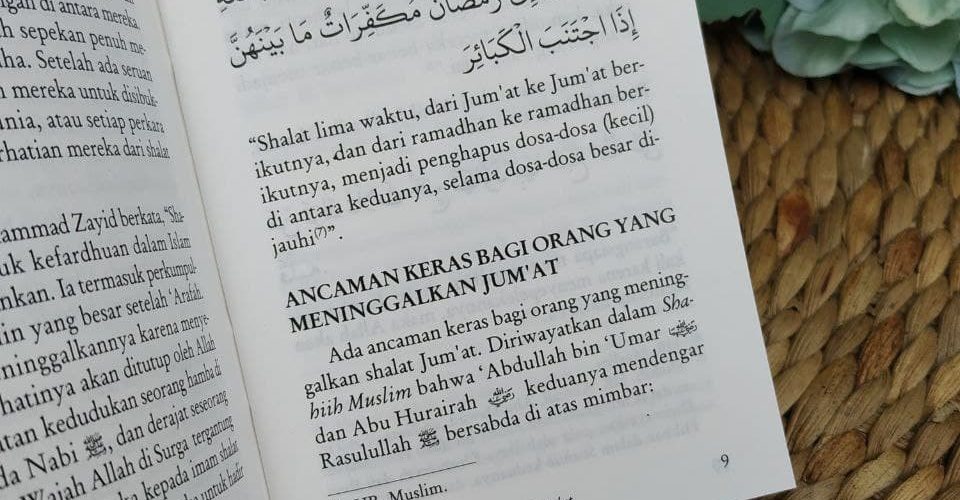 gan di antara mereka
sepekan penuh me-
Setelah ada seruan
mereka untuk disibuk-
atau setiap perkara
mereka dari shalat
Zayid berkata, “Sha-
kefardhuan dalam Islam
Ia termasuk perkumpul-
yang besar setelah ‘Arafah.
karena menye-
akan ditutup oleh Allah
kedudukan seorang hamba di
Nabi ﷺ, dan derajat seseorang
Wajah Allah di Surga tergantung
kepada imam shalat
untuk hadir
رمضان مكفرات ما بينهن
إذا اجتنب الكبائر
“Shalat lima waktu, dari Jum'at ke Jum'at ber-
ikutnya, dan dari ramadhan ke ramadhan ber-
ikutnya, menjadi penghapus dosa-dosa (kecil)
di antara keduanya, selama dosa-dosa besar di-
jauhi⁽⁷⁾”.
ANCAMAN KERAS BAGI ORANG YANG
MENINGGALKAN JUM'AT
Ada ancaman keras bagi orang yang mening-
galkan shalat Jum'at. Diriwayatkan dalam Sha-
hiih Muslim bahwa ‘Abdullah bin ‘Umar
dan Abu Hurairah keduanya mendengar
Rasulullah ﷺ bersabda di atas mimbar:
HR. Muslim.
9